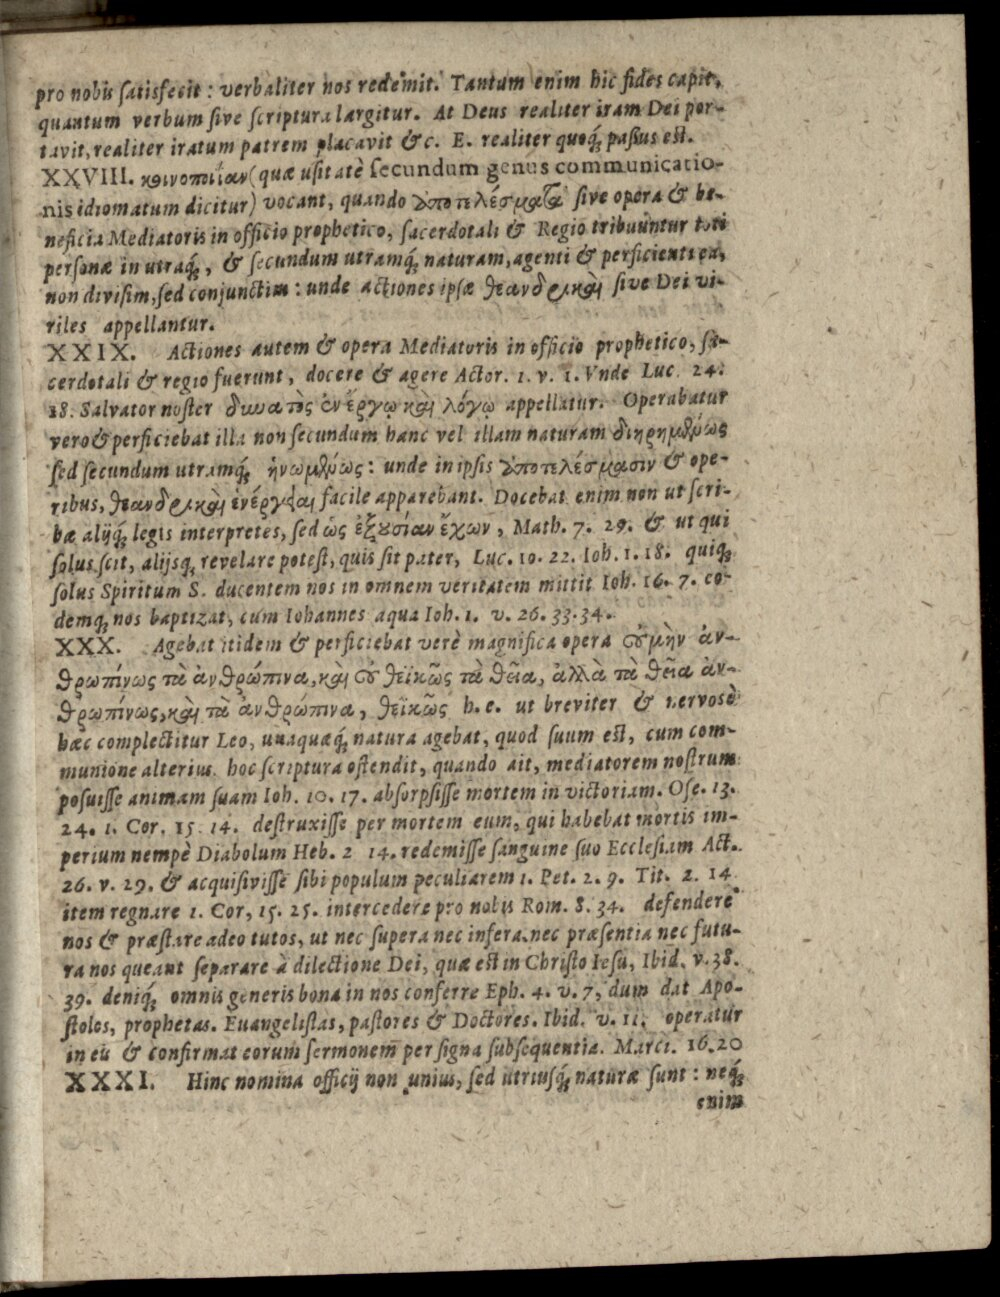 pro nobis ſatisfecit : verbaliter nos redemit. Tantum enim hic fides capit,
quantum verbum ſive ſcriptura largitur. At Deus realiter iram Dei por-
tavit, realiter iratum patrem placavit &c. E. realiter quoq; paſſus eſt.
XXVIII. κοινοποιΐαν (quæ uſitatè ſecundum genus communicatio-
nis idiomatum dicitur) vocant, quando ἀποτελέσματα ſive opera & be-
neficia Mediatoris in officio prophetico, ſacerdotali & Regio tribuuntur toti
perſonæ in utraq;, & ſecundum utramq; naturam, agenti & perficienti ea,
non diviſim, ſed conjunctim : unde actiones ipſæ θεανδρικαὶ ſive Dei vi-
riles appellantur.
XXIX. Actiones autem & opera Mediatoris in officio prophetico, ſa-
cerdotali & regio fuerunt, docere & agere Actor. 1. v. 1. Vnde Luc. 24.
18. Salvator noſter δυνατὸς ἐν ἔργῳ καὶ λόγῳ appellatur. Operabatur
vero & perficiebat illa non ſecundum hanc vel illam naturam διῃρημένως
ſed ſecundum utramq; ἡνωμένως : unde in ipſis ἀποτελέσμασιν & ope-
ribus, θεανδρικαὶ ἐνέργειαι facile apparebant. Docebat enim non ut ſcri-
bæ alijq; legis interpretes, ſed ὡς ἐξουσίαν ἔχων, Math. 7. 29. & ut qui
ſolus ſcit, alijsq; revelare poteſt, quis ſit pater, Luc. 10. 22. Ioh. 1. 18. quiq;
ſolus Spiritum S. ducentem nos in omnem veritatem mittit Ioh. 16. 7. eo-
demq; nos baptizat, cum Iohannes aqua Ioh. 1. v. 26. 33. 34.
XXX. Agebat itidem & perficiebat verè magnifica opera οὐ μὴν ἀν-
θρωπίνως τὰ ἀνθρώπινα, καὶ οὐ θεϊκῶς τὰ θεῖα, ἀλλὰ τὰ θεῖα ἀν-
θρωπίνως, καὶ τὰ ἀνθρώπινα, θεϊκῶς h. e. ut breviter & nervosè
hæc complectitur Leo, unaquæq; natura agebat, quod ſuum eſt, cum com-
munione alterius. hoc ſcriptura oſtendit, quando ait, mediatorem noſtrum
poſuiſſe animam ſuam Ioh. 10. 17. abſorpſiſſe mortem in victoriam. Oſe. 13.
24. 1. Cor. 15. 14. deſtruxiſſe per mortem eum, qui habebat mortis im-
perium nempè Diabolum Heb. 2 14. redemiſſe ſanguine ſuo Eccleſiam Act.
26. v. 29. & acquiſiviſſe ſibi populum peculiarem 1. Pet. 2. 9. Tit. 2. 14
item regnare 1. Cor, 15. 25. intercedere pro nobis Rom. 8. 34. defendere
nos & præſtare adeo tutos, ut nec ſupera nec infera, nec præſentia nec futu-
ra nos queant ſeparare à dilectione Dei, quæ eſt in Chriſto Ieſu, Ibid. v. 38.
39. deniq; omnis generis bona in nos conferre Eph. 4. v. 7, dum dat Apo-
ſtolos, prophetas. Euangeliſtas, paſtores & Doctores. Ibid. v. 11. operatur
in eis & confirmat eorum ſermonem per ſigna ſubſequentia. Marci. 16. 20
XXXI. Hinc nomina officij non unius, ſed utriuſq; naturæ ſunt : neq;
enim